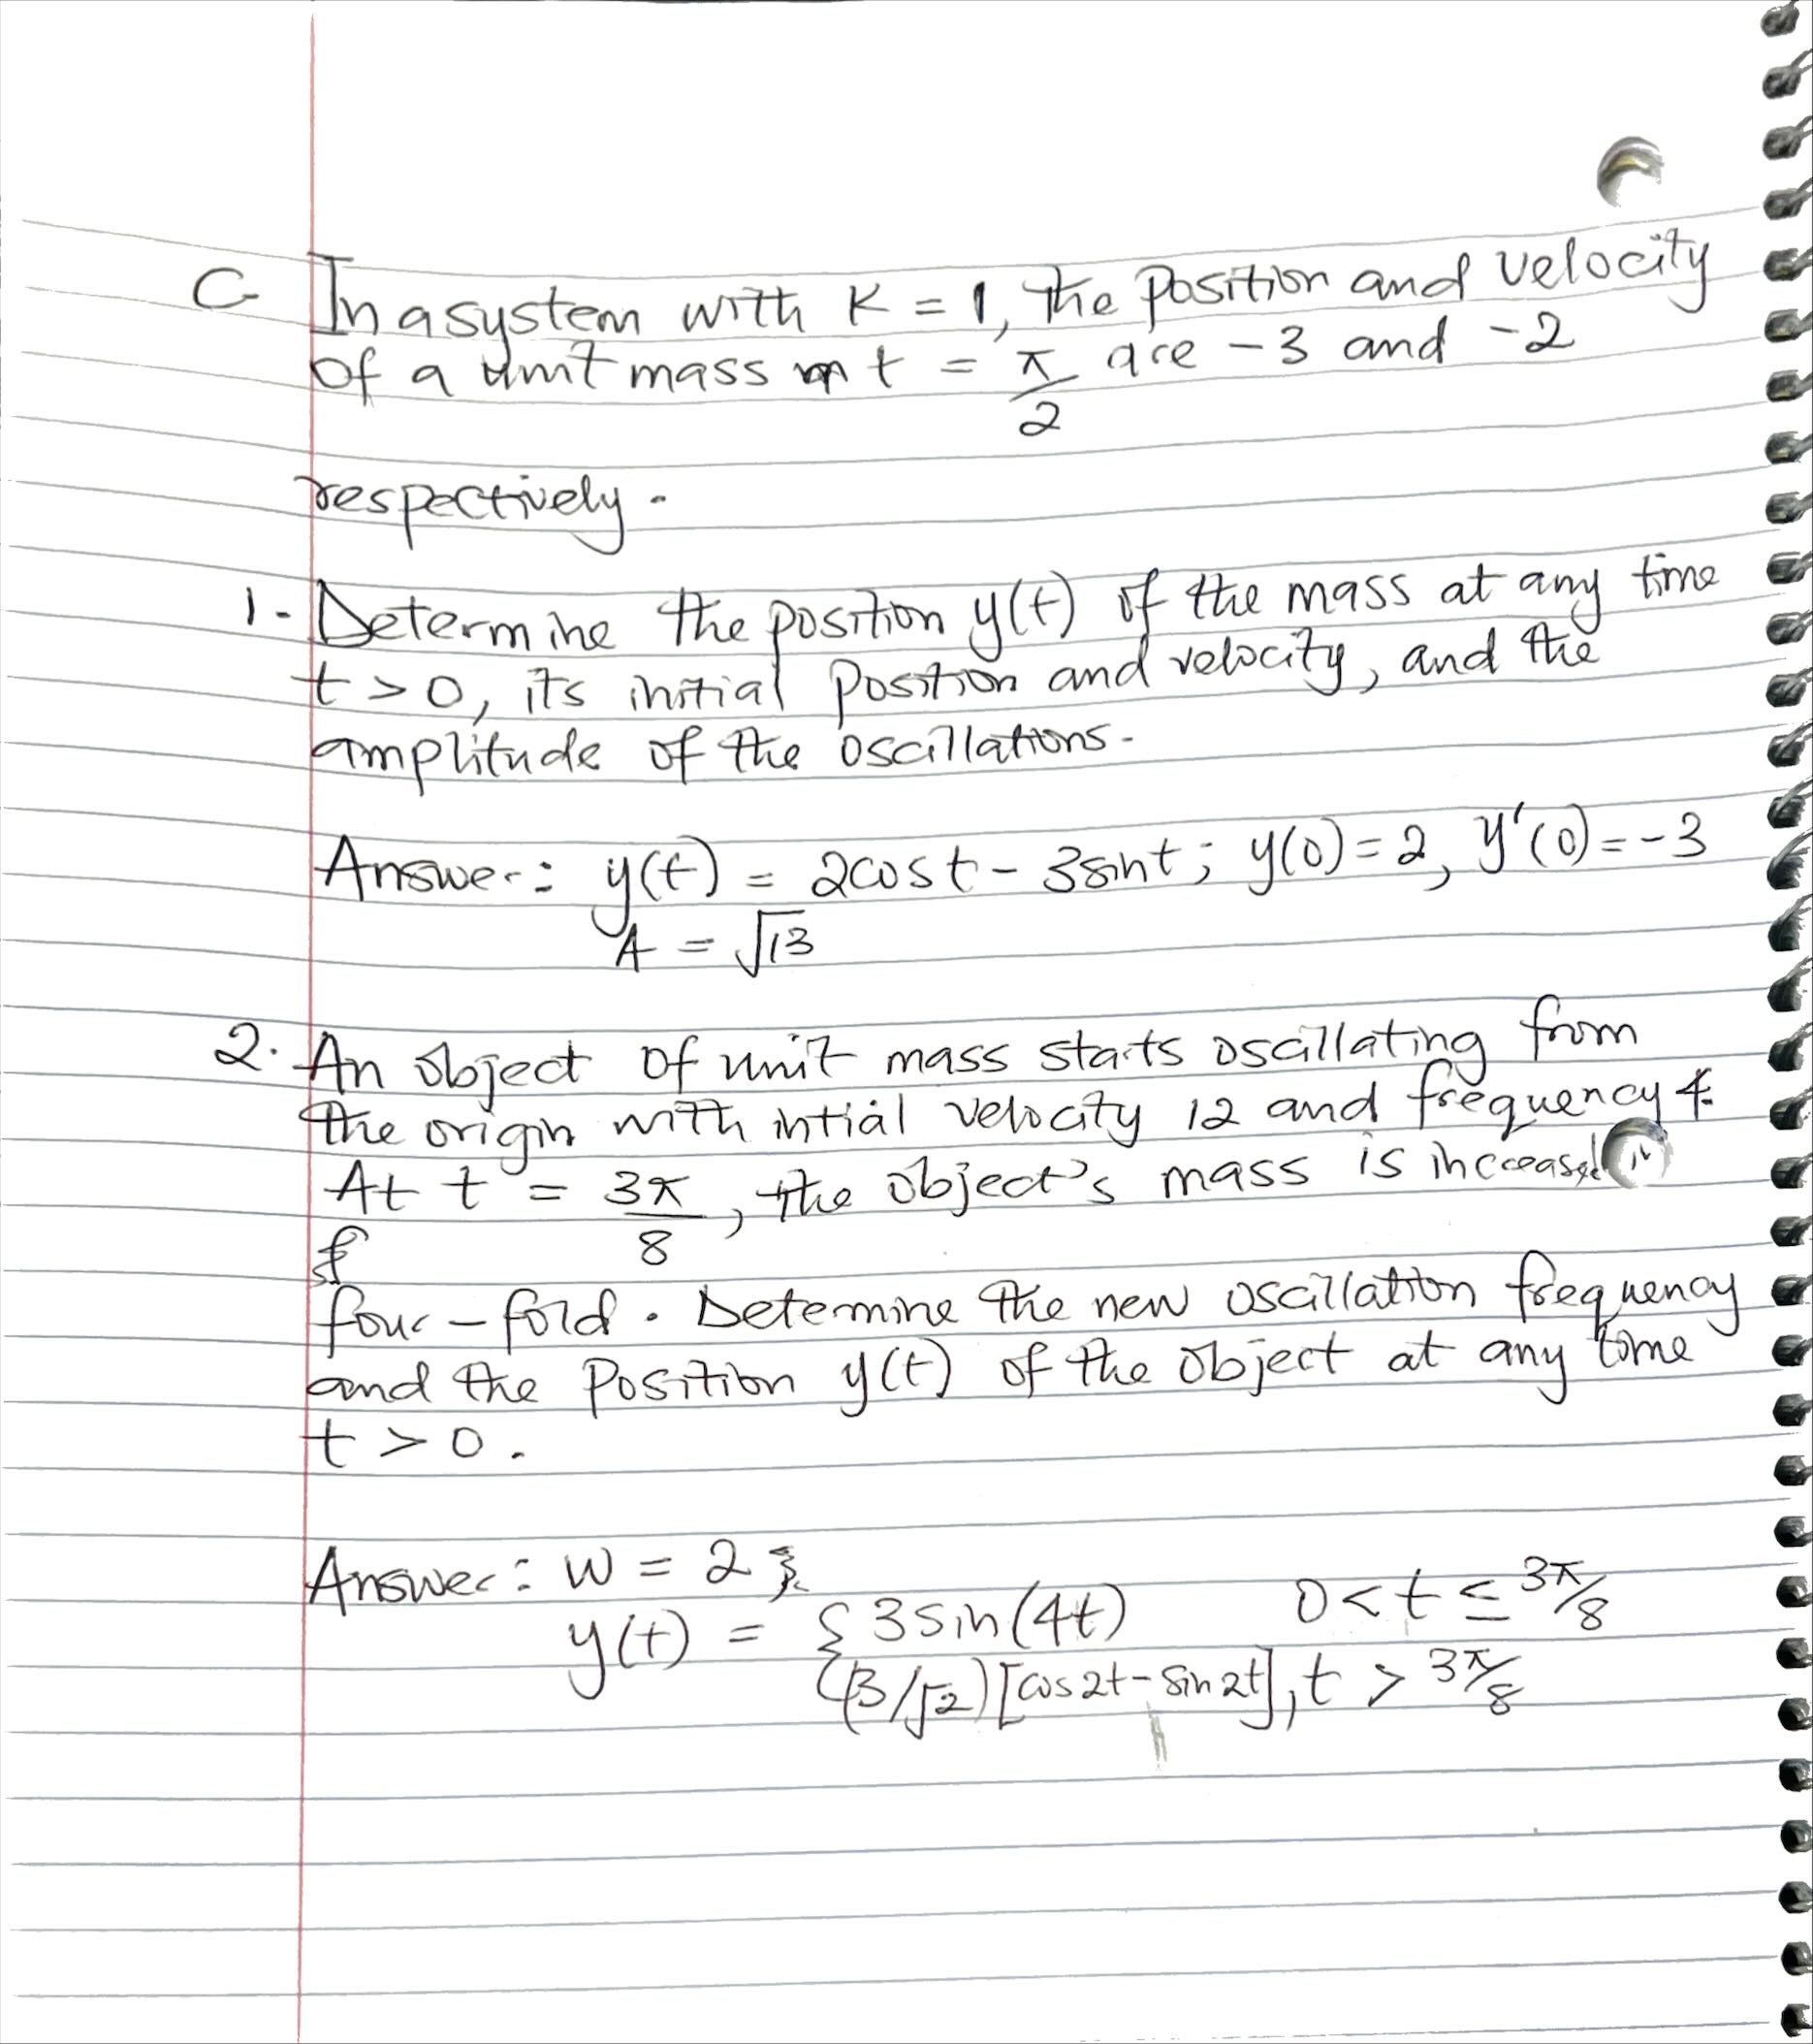 C In a system with K = 1, the position and velocity
of a unit mass at t = π/2 are -3 and -2
respectively.
1. Determine the position y(t) of the mass at any time
t > 0, its initial position and velocity, and the
amplitude of the oscillations.
Answer: y(t) = 2cost - 3sint; y(0) = 2, y'(0) = -3
A = √13
2. An object of unit mass starts oscillating from
the origin with intial velocity 12 and frequency 4.
At t = 3π/8, the object's mass is increased
f
four-fold. Detemine the new oscillation frequency
and the position y(t) of the object at any time
t > 0.
Answer: w = 2;
y(t) = { 3sin(4t) 0 < t ≤ 3π/8
(3/√2)[cos2t - sin2t], t > 3π/8